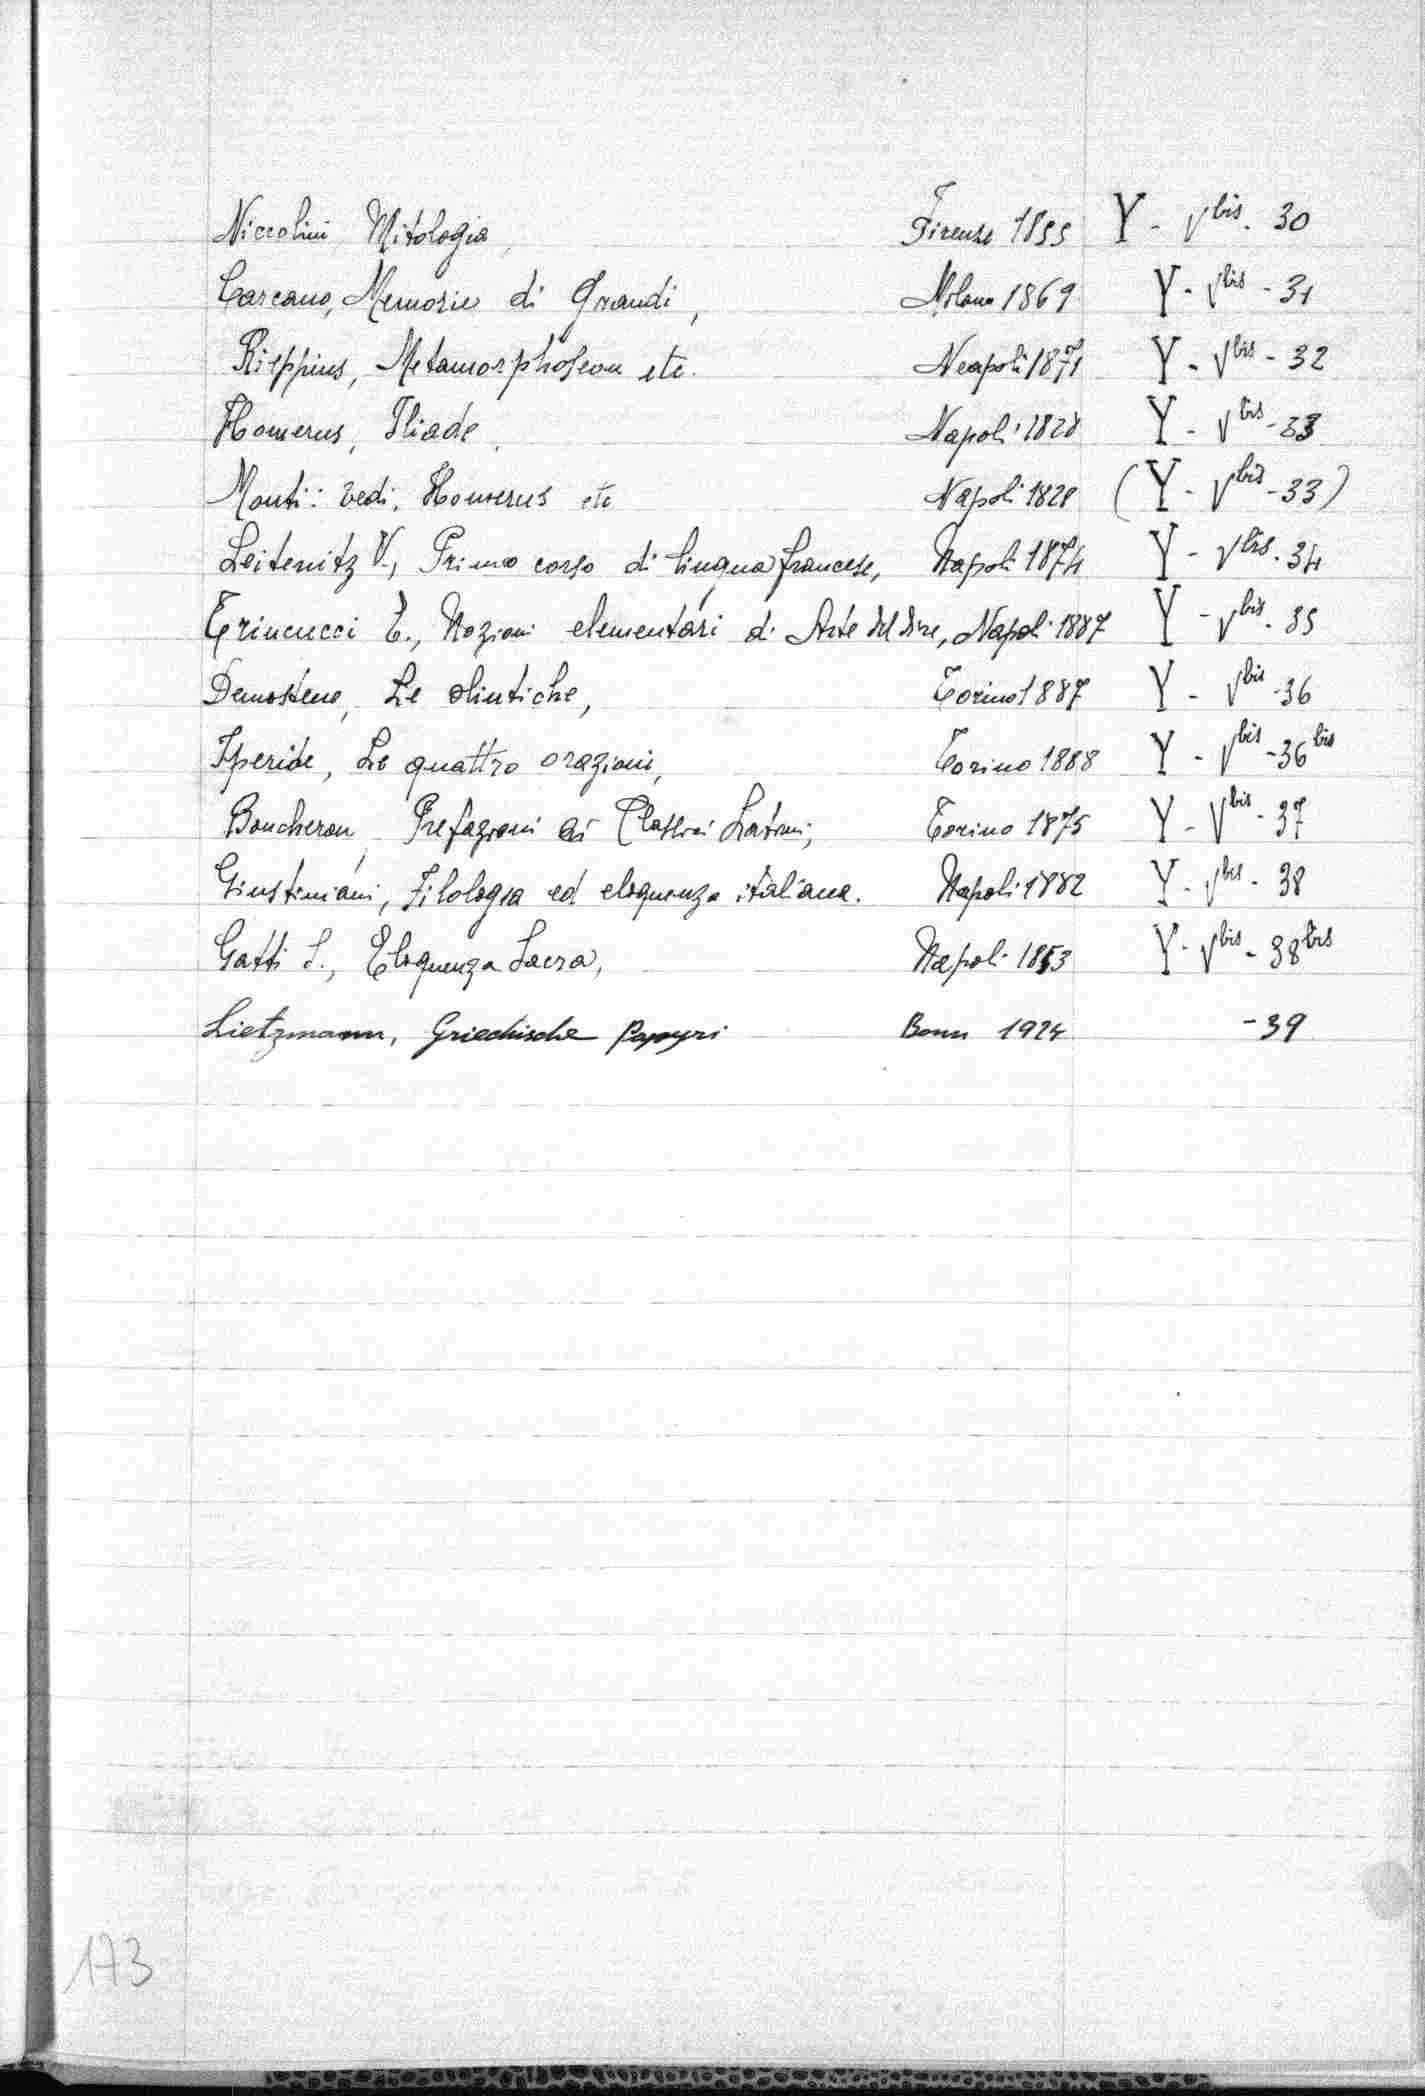 Niccolini, Mitologia, Firenze 1855 Y - V bis - 30
Carcano, Memorie di Grandi, Milano 1869 Y - V bis - 31
Metamorphoseon etc. Neapoli 1871 Y - V bis - 32
Homerus, Iliade, Napoli 1828 Y - V bis - 33
Monti: vedi: Homerus etc Napoli 1828 (Y - V bis - 33)
Leitenitz V., Primo corso di lingua francese, Napoli 1874 Y - V bis - 34
Trincucci E., Nozioni elementari di Arte del dire, Napoli 1887 Y - V bis - 35
Demostene, Le olintiche, Torino 1887 Y - V bis - 36
Iperide, Le quattro orazioni, Torino 1888 Y - V bis - 36 bis
Boucheron, Prefazioni ai Classici Latini, Torino 1875 Y - V bis - 37
Giustiniani, Filologia ed eloquenza italiana. Napoli 1882 Y - V bis - 38
Gatti S., Eloquenza Sacra, Napoli 1853 Y - V bis - 38 bis
Lietzmann, Griechische Papyri Bonn 1924 - 39
173